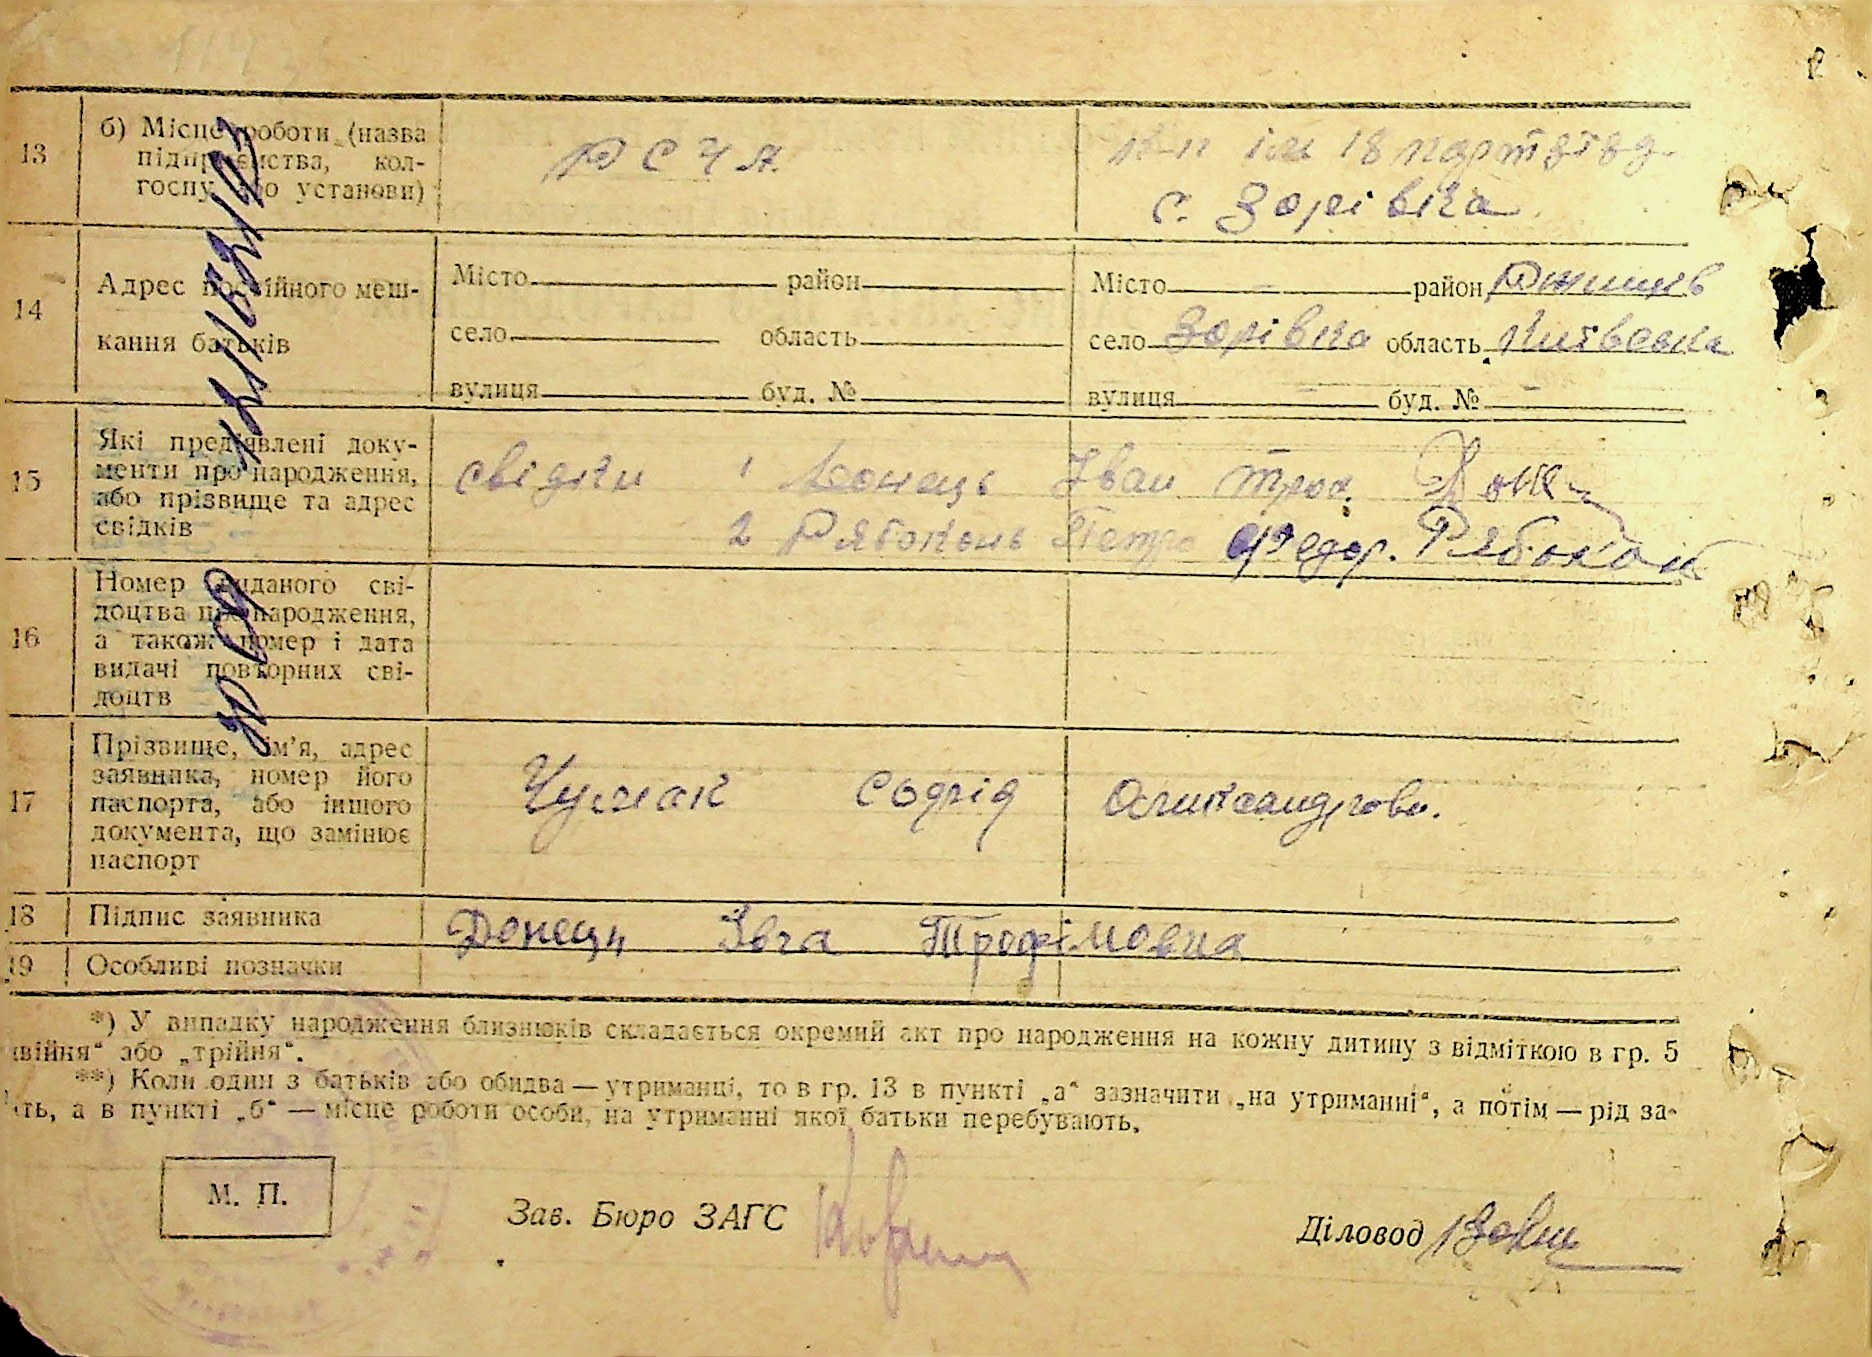 13
б) Місце роботи (назва
підприємства, кол-
госпу або установи)
Р С Ч А.
к-п ім 18 партз'їзд
с. Зорівка
14
Адрес постійного меш-
кання батьків
Місто район
село область
вулиця буд. №
Місто район Ржищів
село Зорівка область Київська
вулиця буд. №
15
Які пред'явлені доку-
менти про народження,
або прізвище та адрес
свідків
свідки 1 Донець Іван Троф.
2 Рябоконь Петро Федор. Рябокон
16
Номер виданого сві-
доцтва про народження,
а також номер і дата
видачі повторних сві-
доцтв
17
Прізвище, ім'я, адрес
заявника, номер його
паспорта, або іншого
документа, що замінює
паспорт
Чумак
18
Підпис заявника
Донець Івга Трофімовна
19
Особливі позначки
*) У випадку народження близнюків складається окремий акт про народження на кожну дитину з відміткою в гр. 5
двійня“ або „трійня“.
**) Коли один з батьків або обидва — утриманці, то в гр. 13 в пункті „а“ зазначити „на утриманні“, а потім — рід за-
ть, а в пункті „б“ — місце роботи особи, на утриманні якої батьки перебувають.
М. П.
Зав. Бюро ЗАГС
Діловод